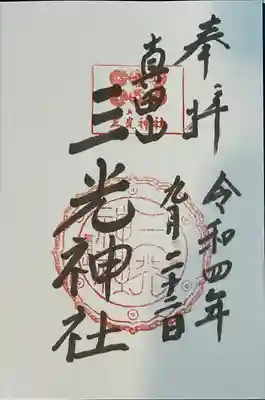 奉拝
真田山
三光神社
令和四年
九月二十三日